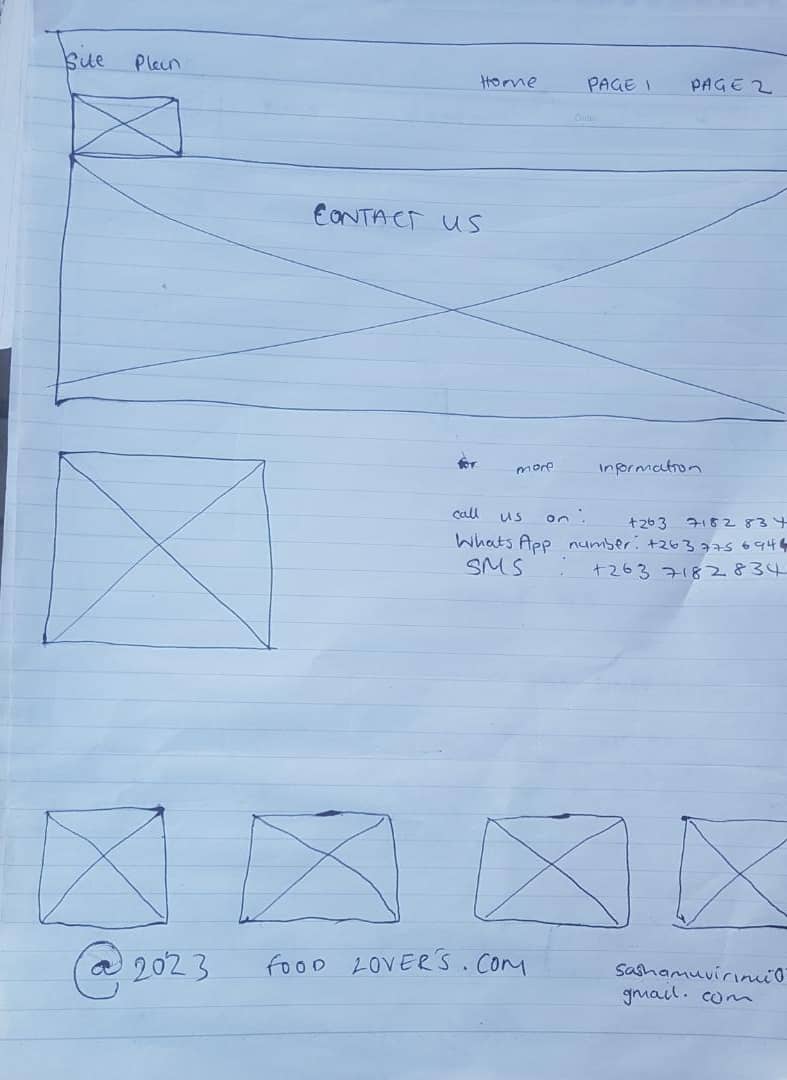 Site Plan
Home PAGE 1 PAGE 2
CONTACT US
for more information
call us on: +263 7182 834
WhatsApp number: +263 775 694
SMS : +263 7182 834
@ 2023 FOOD LOVER'S . COM
sashamuvirimi0
gmail. com